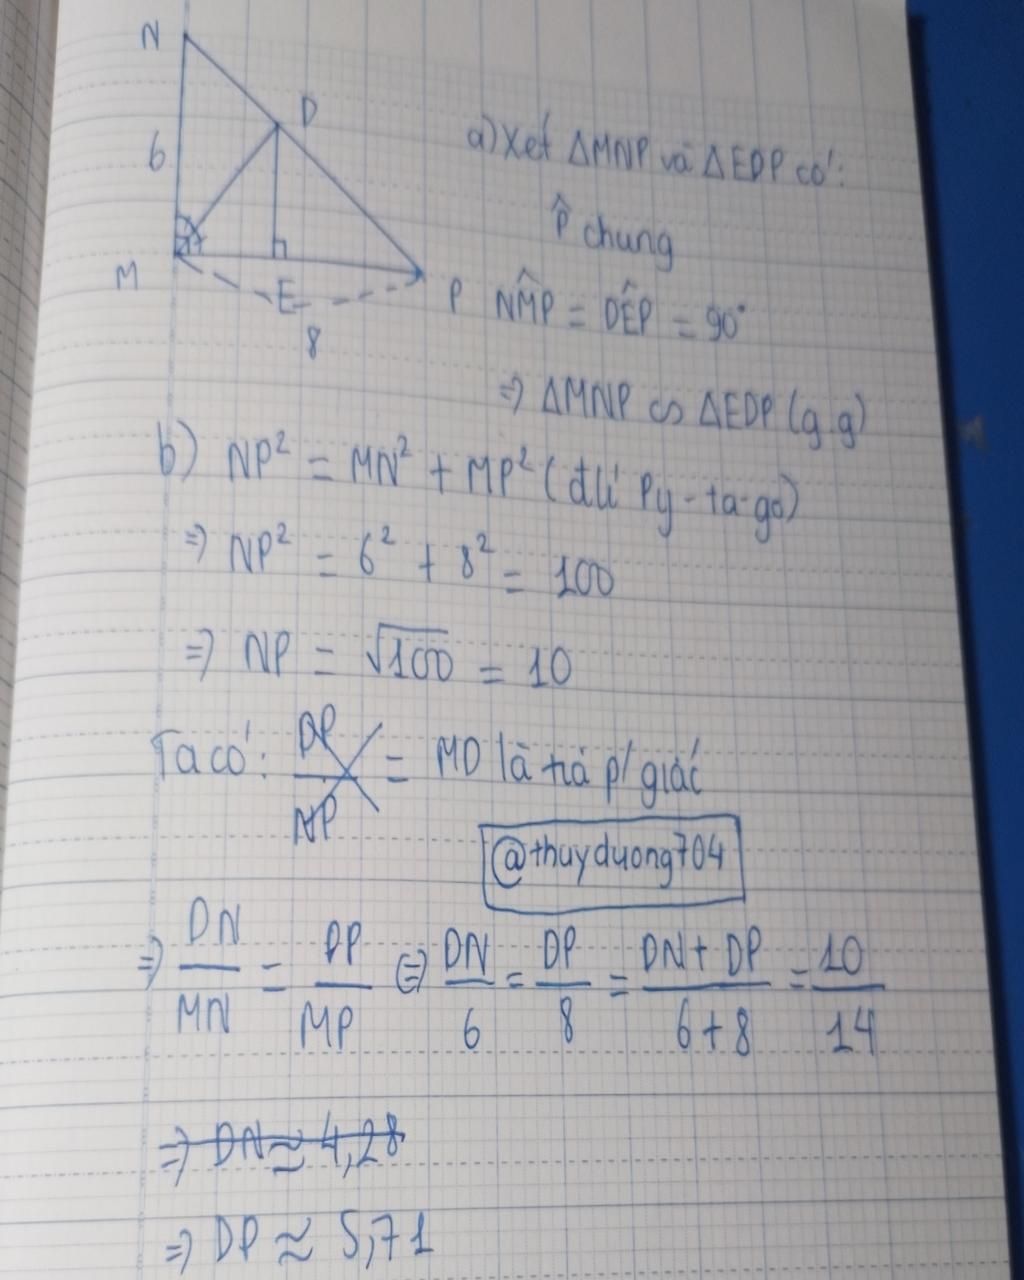 N
D
6
M
E
P
8
a) Xét ΔMNP và ΔEDP có:
P̂ chung
NM̂P = DÊP = 90°
=> ΔMNP ∽ ΔEDP (g.g)
b) NP² = MN² + MP² (đlí Py-ta-go)
=> NP² = 6² + 8² = 100
=> NP = √100 = 10
Ta có: DP/NP = MD là tia p/giác
@thuyduong704
=> DN/MN = DP/MP <=> DN/6 = DP/8 = DN + DP/6+8 = 10/14
=> DN ≈ 4,28
=> DP ≈ 5,71